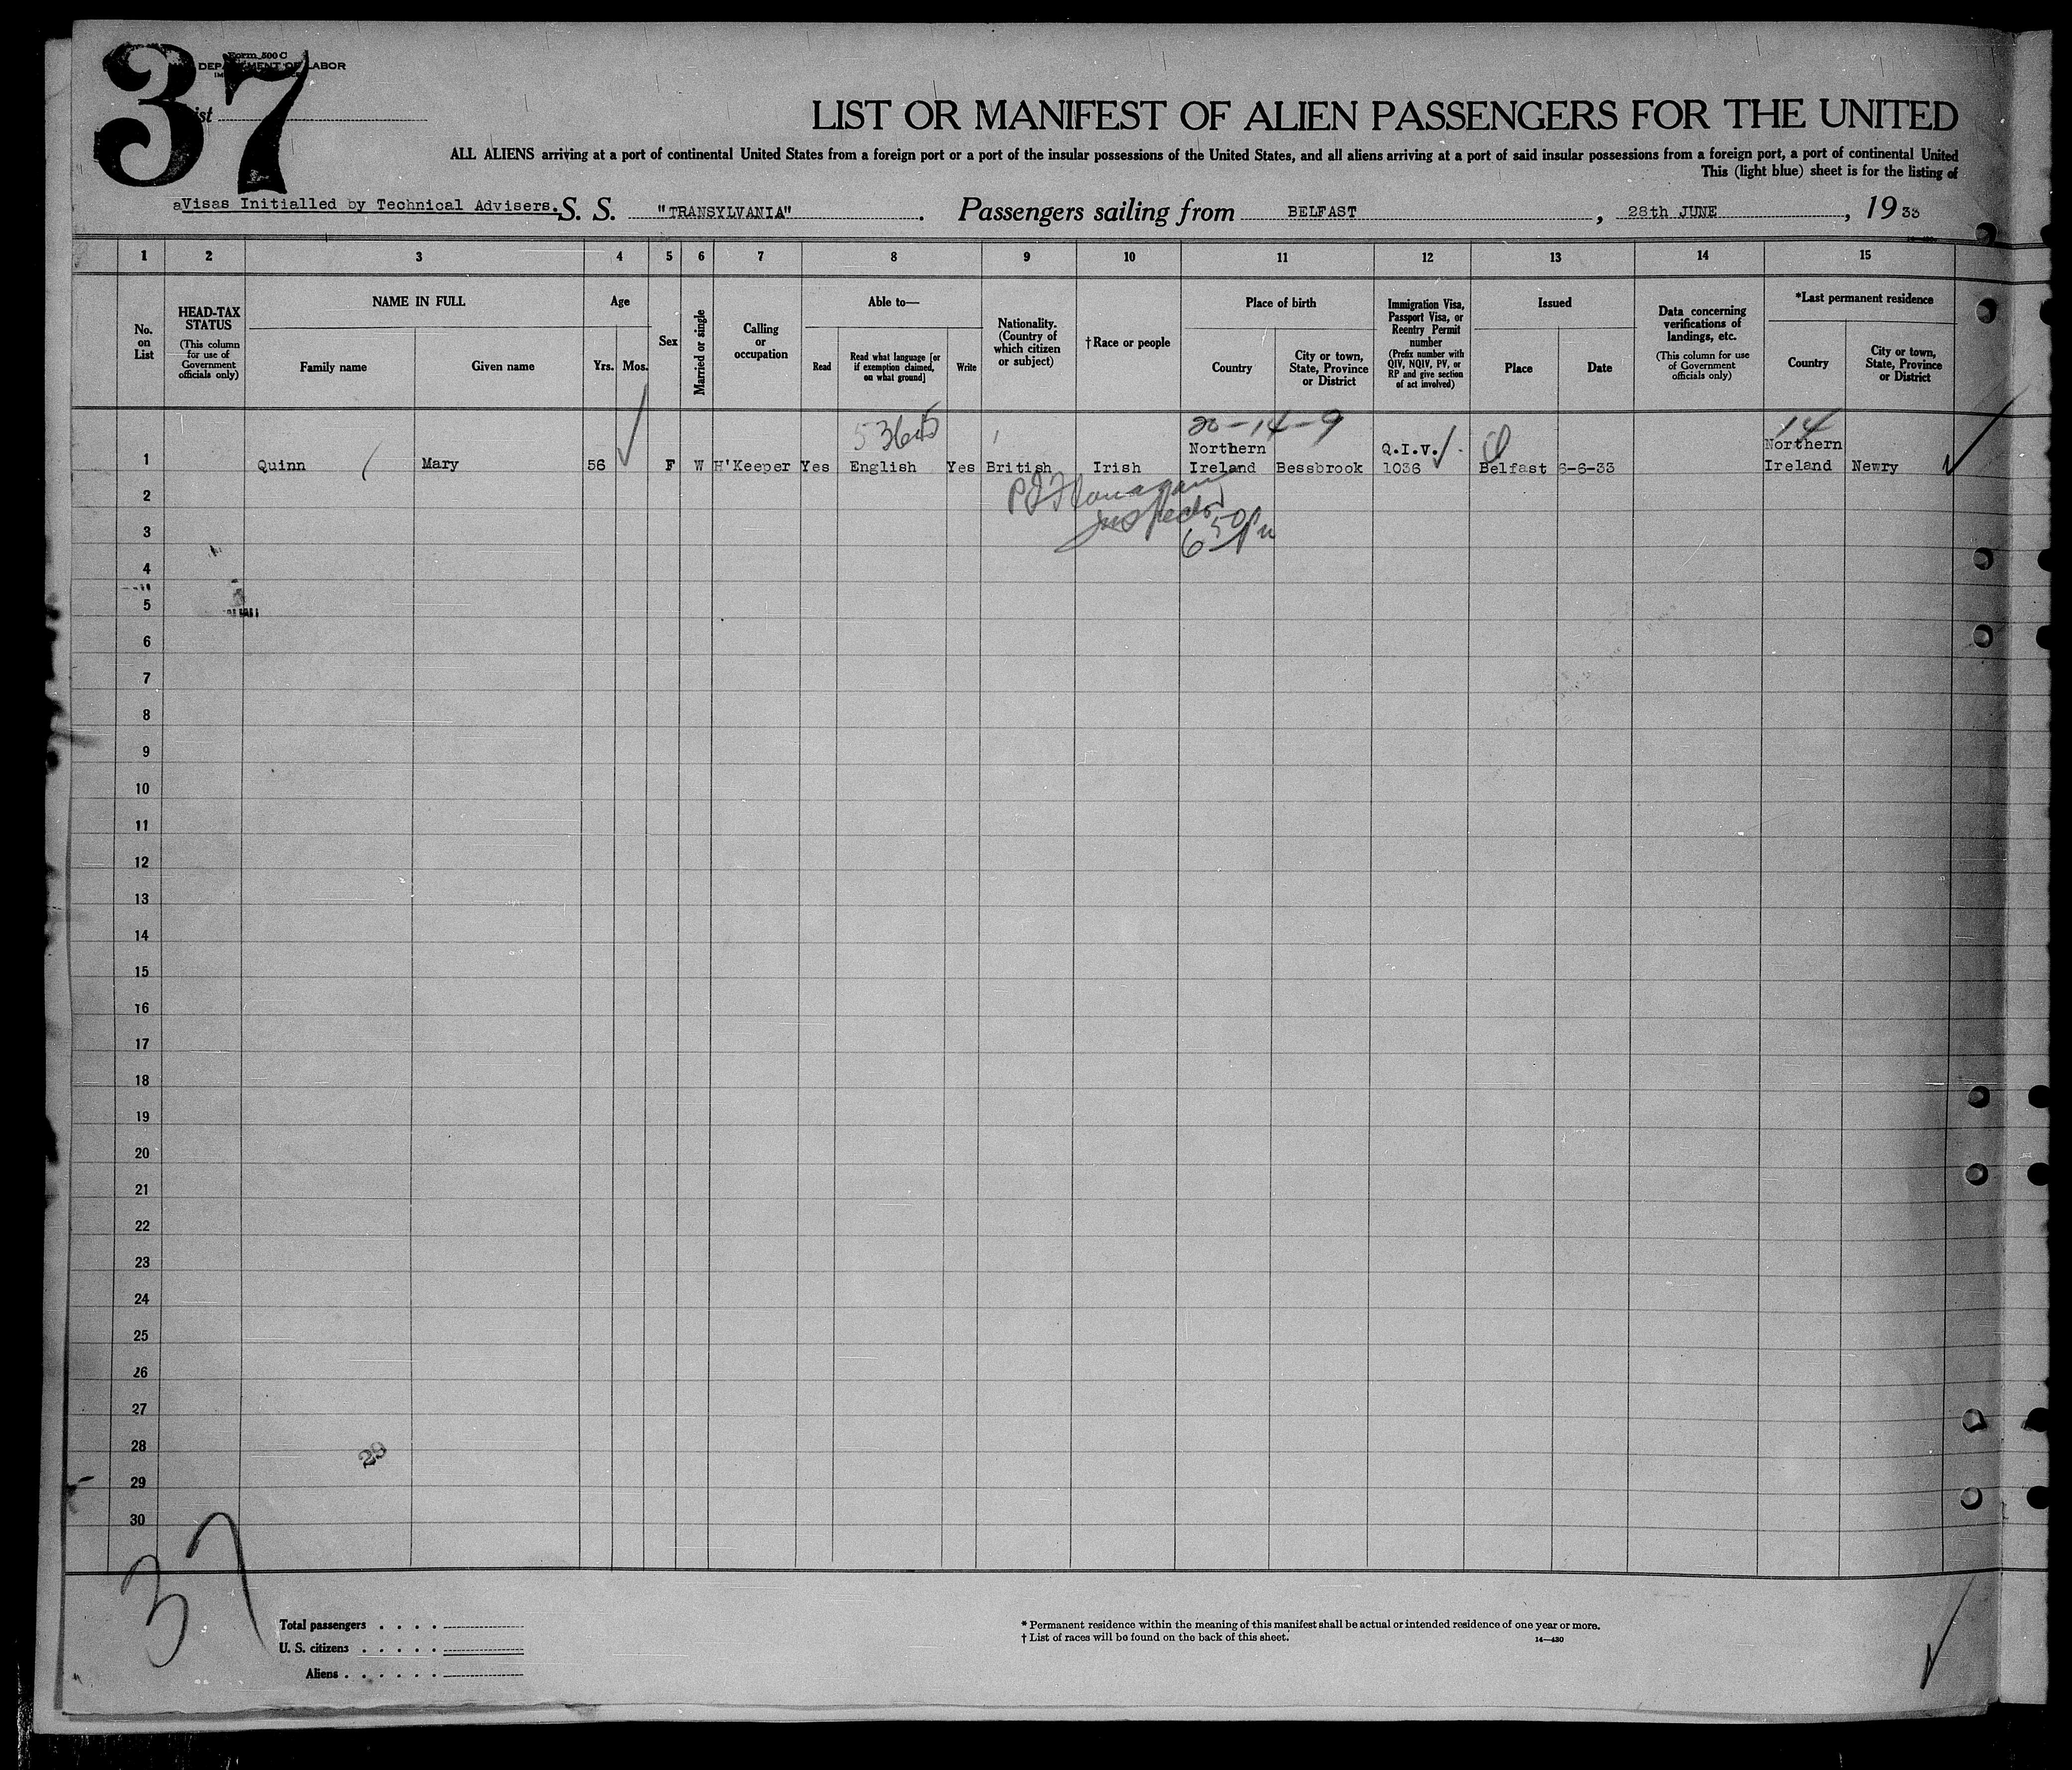 37
Form 500 C
DEPARTMENT OF LABOR
LIST OR MANIFEST OF ALIEN PASSENGERS FOR THE UNITED
ALL ALIENS arriving at a port of continental United States from a foreign port or a port of the insular possessions of the United States, and all aliens arriving at a port of said insular possessions from a foreign port, a port of continental United
This (light blue) sheet is for the listing of
aVisas Initialled by Technical Advisers. S. S. "TRANSYLVANIA" . Passengers sailing from BELFAST , 28th JUNE , 19 33
1 2 3 4 5 6 7 8 9 10 11 12 13 14 15
No. on List
HEAD-TAX STATUS
(This column for use of Government officials only)
NAME IN FULL
Family name Given name
Age
Yrs. Mos.
Sex
Married or single
Calling or occupation
Able to—
Read
Read what language [or if exemption claimed, on what ground]
Write
Nationality. (Country of which citizen or subject)
†Race or people
Place of birth
Country
City or town, State, Province or District
Immigration Visa, Passport Visa, or Reentry Permit number
(Prefix number with QIV, NQIV, PV, or RP and give section of act involved)
Issued
Place Date
Data concerning verifications of landings, etc.
(This column for use of Government officials only)
*Last permanent residence
Country
City or town, State, Province or District
20-14-9 14
Northern Q.I.V. Northern
1 Quinn Mary 56 F W H'Keeper Yes English Yes British Irish Ireland Bessbrook 1036 Belfast 6-6-33 Ireland Newry
Inspector
2
3
4
5
6
7
8
9
10
11
12
13
14
15
16
17
18
19
20
21
22
23
24
25
26
27
28
29
29
30
37
Total passengers . . . .
U. S. citizens . . . . .
Aliens . . . . . .
* Permanent residence within the meaning of this manifest shall be actual or intended residence of one year or more.
† List of races will be found on the back of this sheet. 14—430